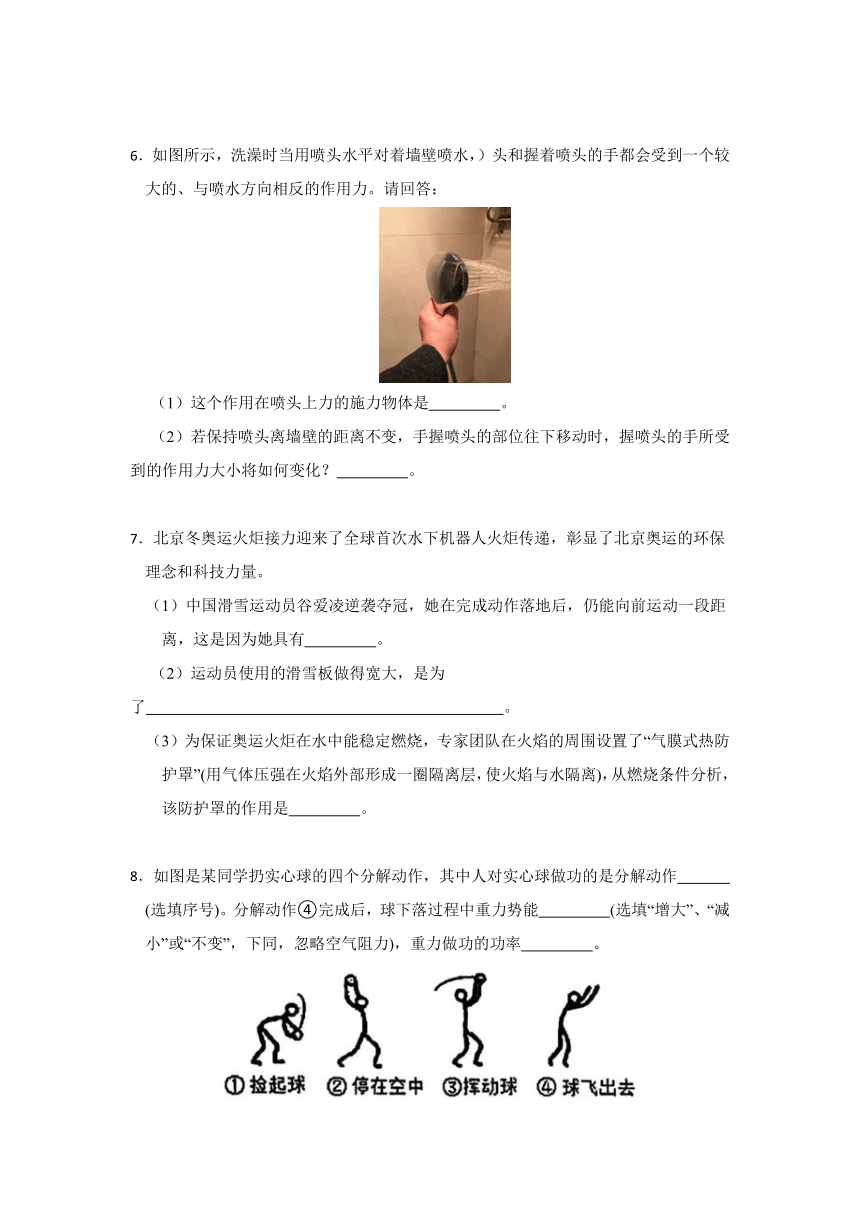 6．如图所示，洗澡时当用喷头水平对着墙壁喷水，）头和握着喷头的手都会受到一个较
大的、与喷水方向相反的作用力。请回答：
（1）这个作用在喷头上力的施力物体是_________。
（2）若保持喷头离墙壁的距离不变，手握喷头的部位往下移动时，握喷头的手所受
到的作用力大小将如何变化？_________。
7．北京冬奥运火炬接力迎来了全球首次水下机器人火炬传递，彰显了北京奥运的环保
理念和科技力量。
（1）中国滑雪运动员谷爱凌逆袭夺冠，她在完成动作落地后，仍能向前运动一段距
离，这是因为她具有_________。
（2）运动员使用的滑雪板做得宽大，是为
了_____________________________________________。
（3）为保证奥运火炬在水中能稳定燃烧，专家团队在火焰的周围设置了“气膜式热防
护罩”(用气体压强在火焰外部形成一圈隔离层，使火焰与水隔离)，从燃烧条件分析，
该防护罩的作用是_________。
8．如图是某同学扔实心球的四个分解动作，其中人对实心球做功的是分解动作______
(选填序号)。分解动作④完成后，球下落过程中重力势能_________(选填“增大”、“减
小”或“不变”，下同，忽略空气阻力)，重力做功的功率_________。
①捡起球 ②停在空中 ③挥动球 ④球飞出去